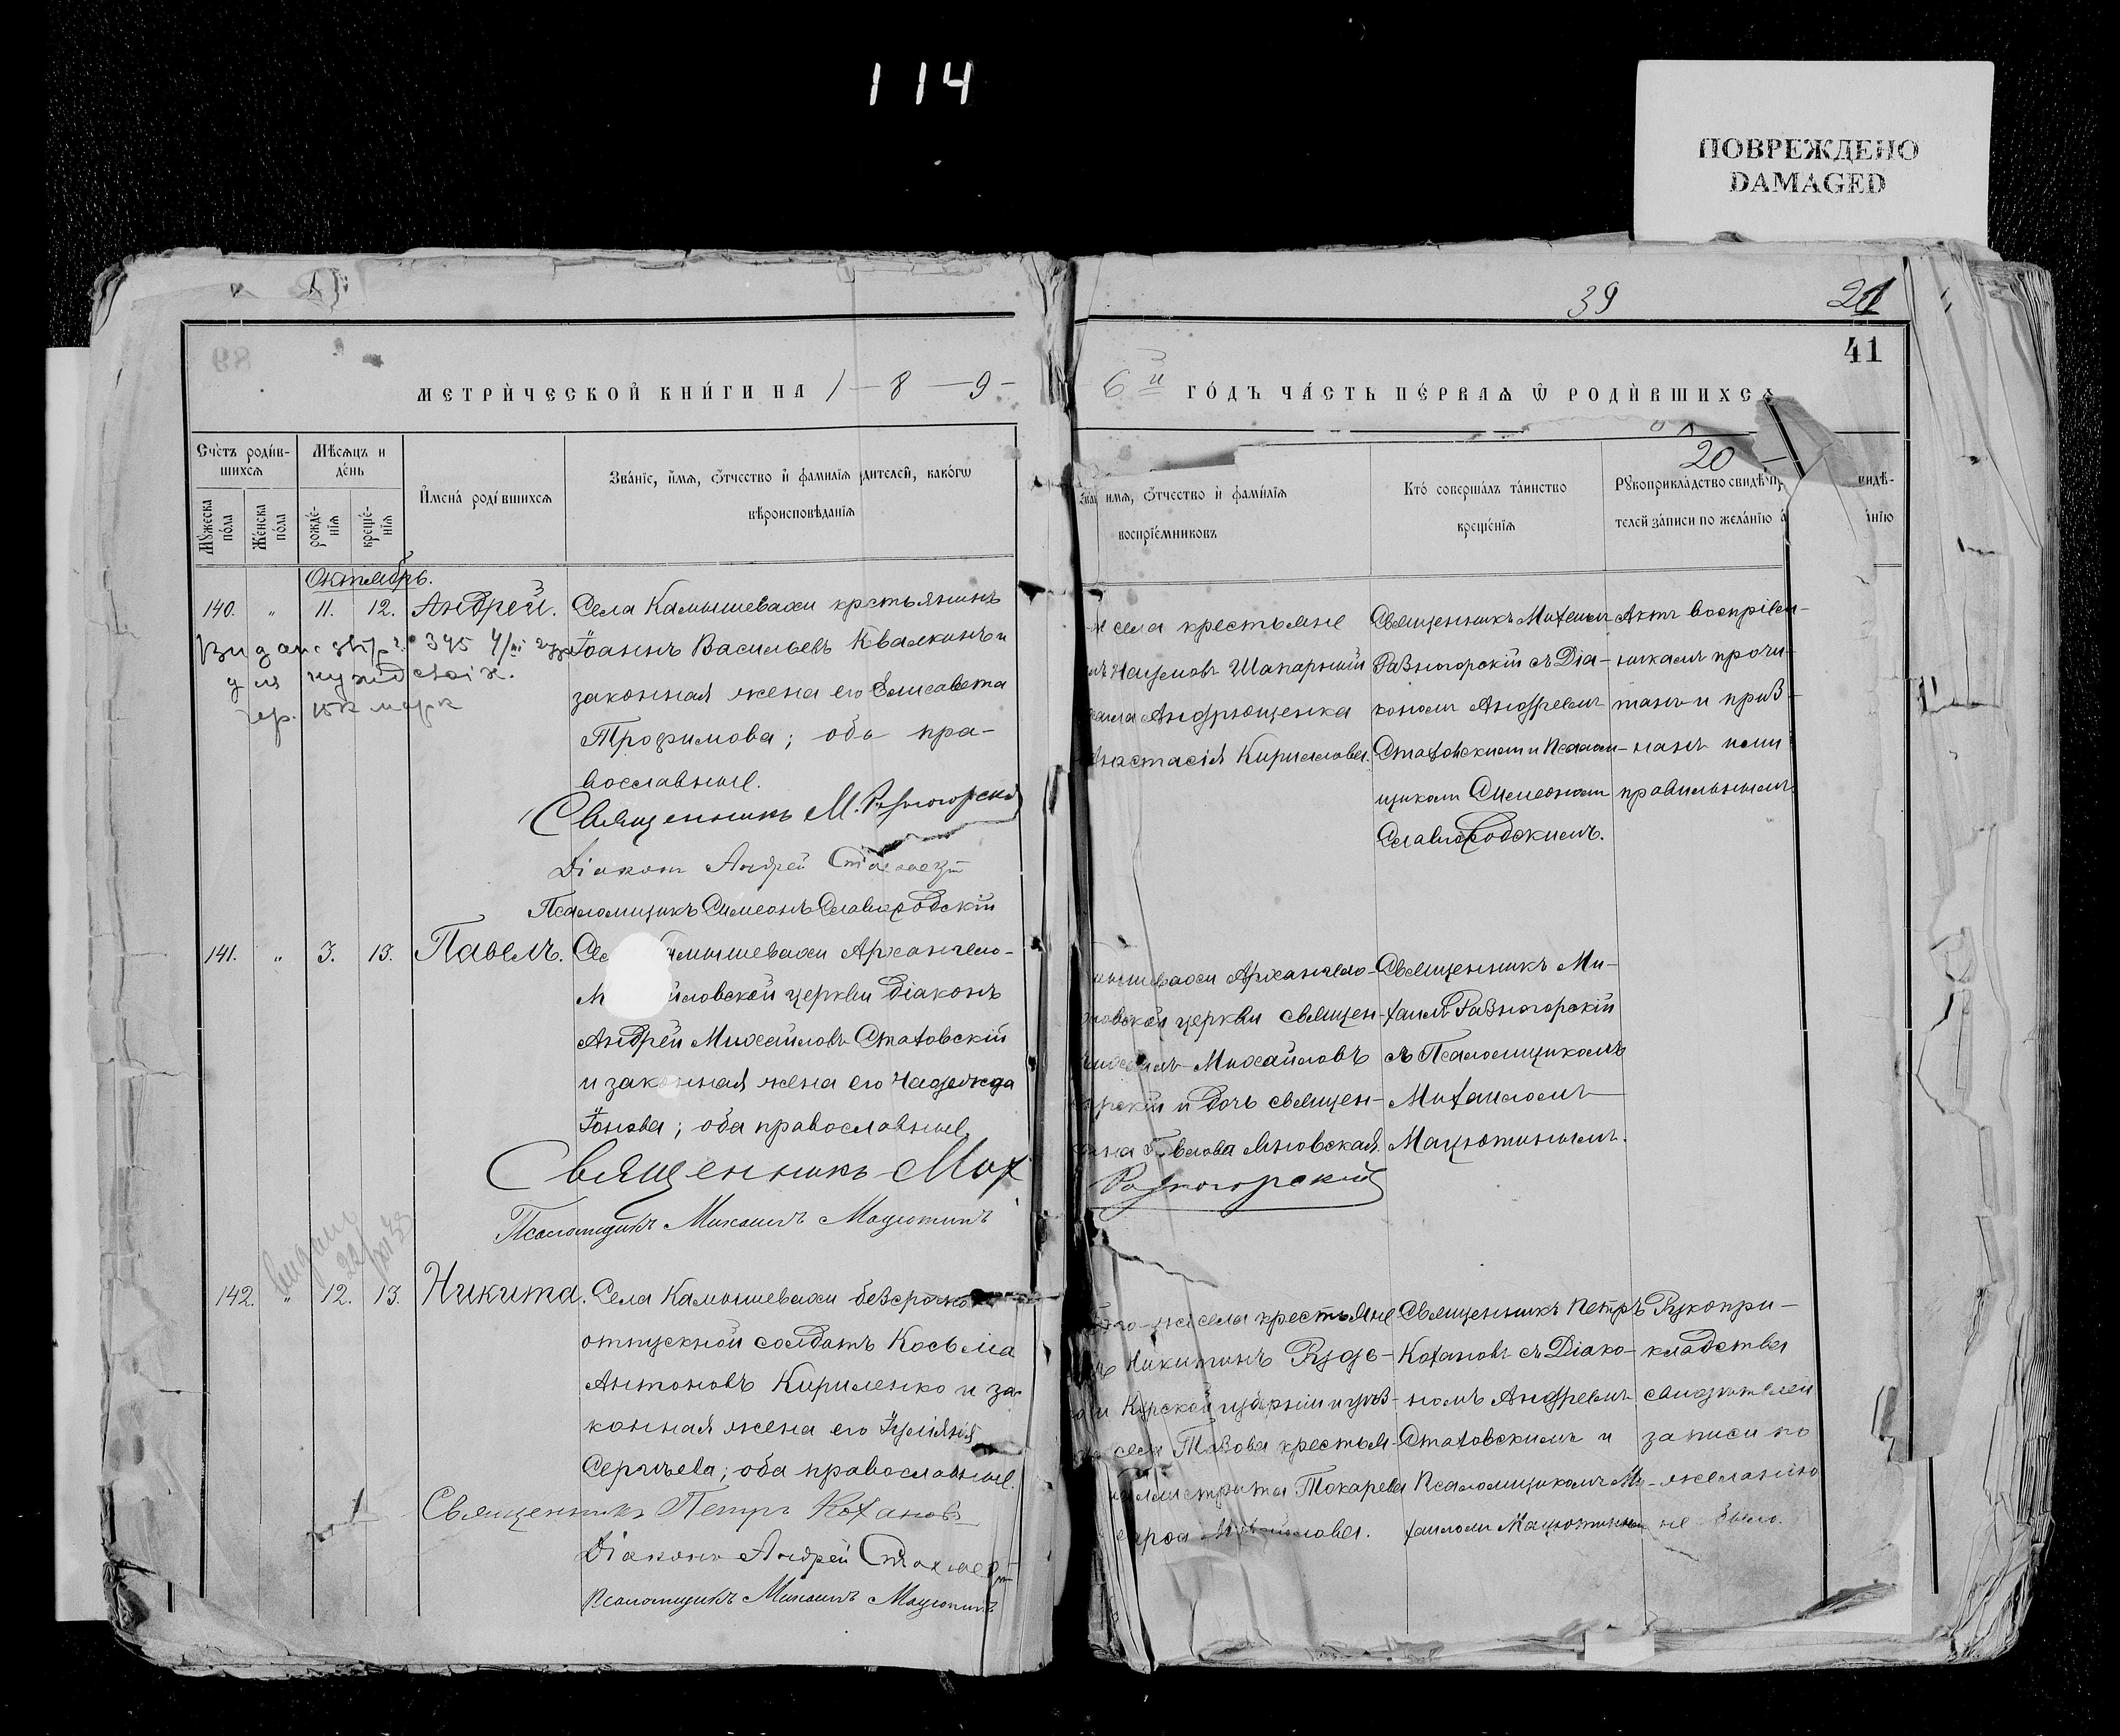 114
ПОВРЕЖДЕНО
DAMAGED
39
21
41
МЕТРИ́ЧЕСКОЙ КНИ́ГИ НА 1-8-9-
6й ГО́ДЪ ЧА́СТЬ ПЕ́РВАѦ Ѿ РОДИ́ВШИХСѦ
20
Сче́тъ роди́в-
шихсѧ
Мѣ́сѧцъ и
де́нь
Имена́ роди́вшихсѧ
Зва́нїе, и́мѧ, ѻ́тчество и҆ фами́лїѧ дителей, како́гѡ
вѣроисповѣ́данїѧ
Мꙋ́жеска
по́ла
Же́нска
по́ла
рожде́-
нїѧ
креще́-
нїѧ
и́мѧ, ѻ́тчество и҆ фами́лїѧ
воспрїе́мниковъ
Кто̀ соверша́лъ та́инство
креще́нїѧ
Рꙋкоприкла́дство свидѣ́
телей за́писи по жела́нїю
видѣ-
а́нїю
Октябрь.
140. " 11. 12. Андрей. Села Камышевахи крстьянинъ
Іоаннъ Васильевъ Квалкинъ и
законная жена его Елисавета
Трофимова; оба пра-
вославные.
Священникъ М. Разногорскій
Діаконъ Андрей
Псаломщикъ Симеонъ Славгородскій
для нужд своіх.
села крестьяне
Наумовъ Шапарный
Андрющенка
Анастасія Кириллова.
Священникъ Михаилъ
Разногорскій съ Діа-
кономъ Андреемъ
Стаховскимъ и Псалом-
щикомъ Симеономъ
Славгородскимъ.
Актъ воспріем-
никамъ прочи-
танъ и приз-
нанъ ими
правильнымъ.
141. " 3. 13. Павелъ. Се мышевахи Архангело-
М йловской церкви діаконъ
Андрей Михайловъ Стаховскій
и законная жена его Надежда
Іонова; оба православные.
Священникъ Мих
Разногорскій
Псаломщикъ Михаилъ Мацютинъ
шевахи Архангело-
ловской церкви священ-
Михайловъ
и дочь священ-
Яновская.
Священникъ Ми-
хаилъ Разногорскій
съ Псаломщикомъ
Михаиломъ
Мацютинымъ.
142. " 12. 13. Никита. Села Камышевахи безсрочно
отпускной солдатъ Косьма
Антоновъ Кириленко и за-
конная жена его Іуліанія
Сергіева; оба православные.
Священникъ Петръ Кохановъ
Діаконъ Андрей
Псаломщикъ Михаилъ Мацютинъ
села крестьяне
Никитинъ
Курской губерніи и
крестьян
Токарева
Священникъ Петръ
Кохановъ съ Діако-
номъ Андреемъ
Стаховскимъ и
Псаломщикомъ Ми-
хаиломъ Мацютинымъ
Рукопри-
кладства
свидѣтелей
записи по
желанію
не было.